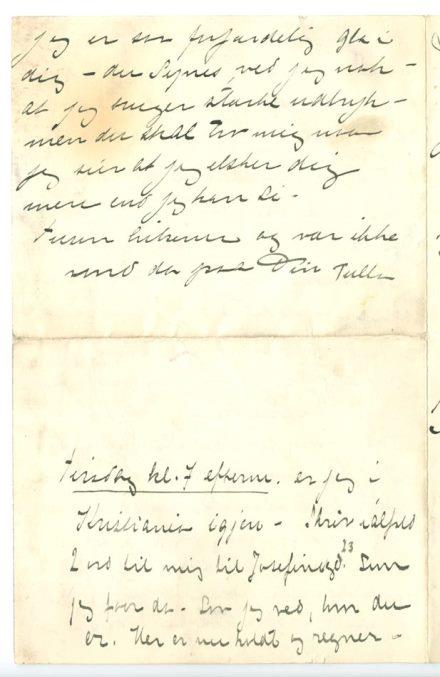 jeg er saa forfærdelig gla i
dig – du synes, ved jeg nok –
at jeg bruger stærke udtryk –
men du skal tro mig naar
jeg sier at jeg elsker dig
mere end jeg kan si –
Tusen hilsener og vær ikke
vond da paa Din Tulla
Tirsdag kl. 7 efterm. er jeg i
Kristiania igjen – Skriv ialfald
2 ord til mig til Josefinegd. 23 som
jeg faar da – Saa jeg ved, hvor du
er. Her er nu koldt og regner –